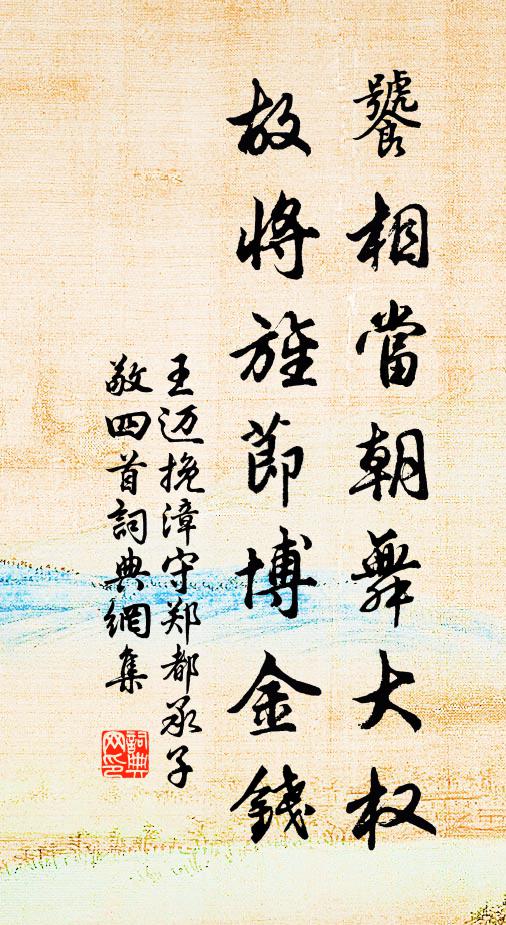 饕相當朝舞大权
故將旌節博金錢
王迈挽漳守郑都承子
敬四首詞典網集
詞典網印